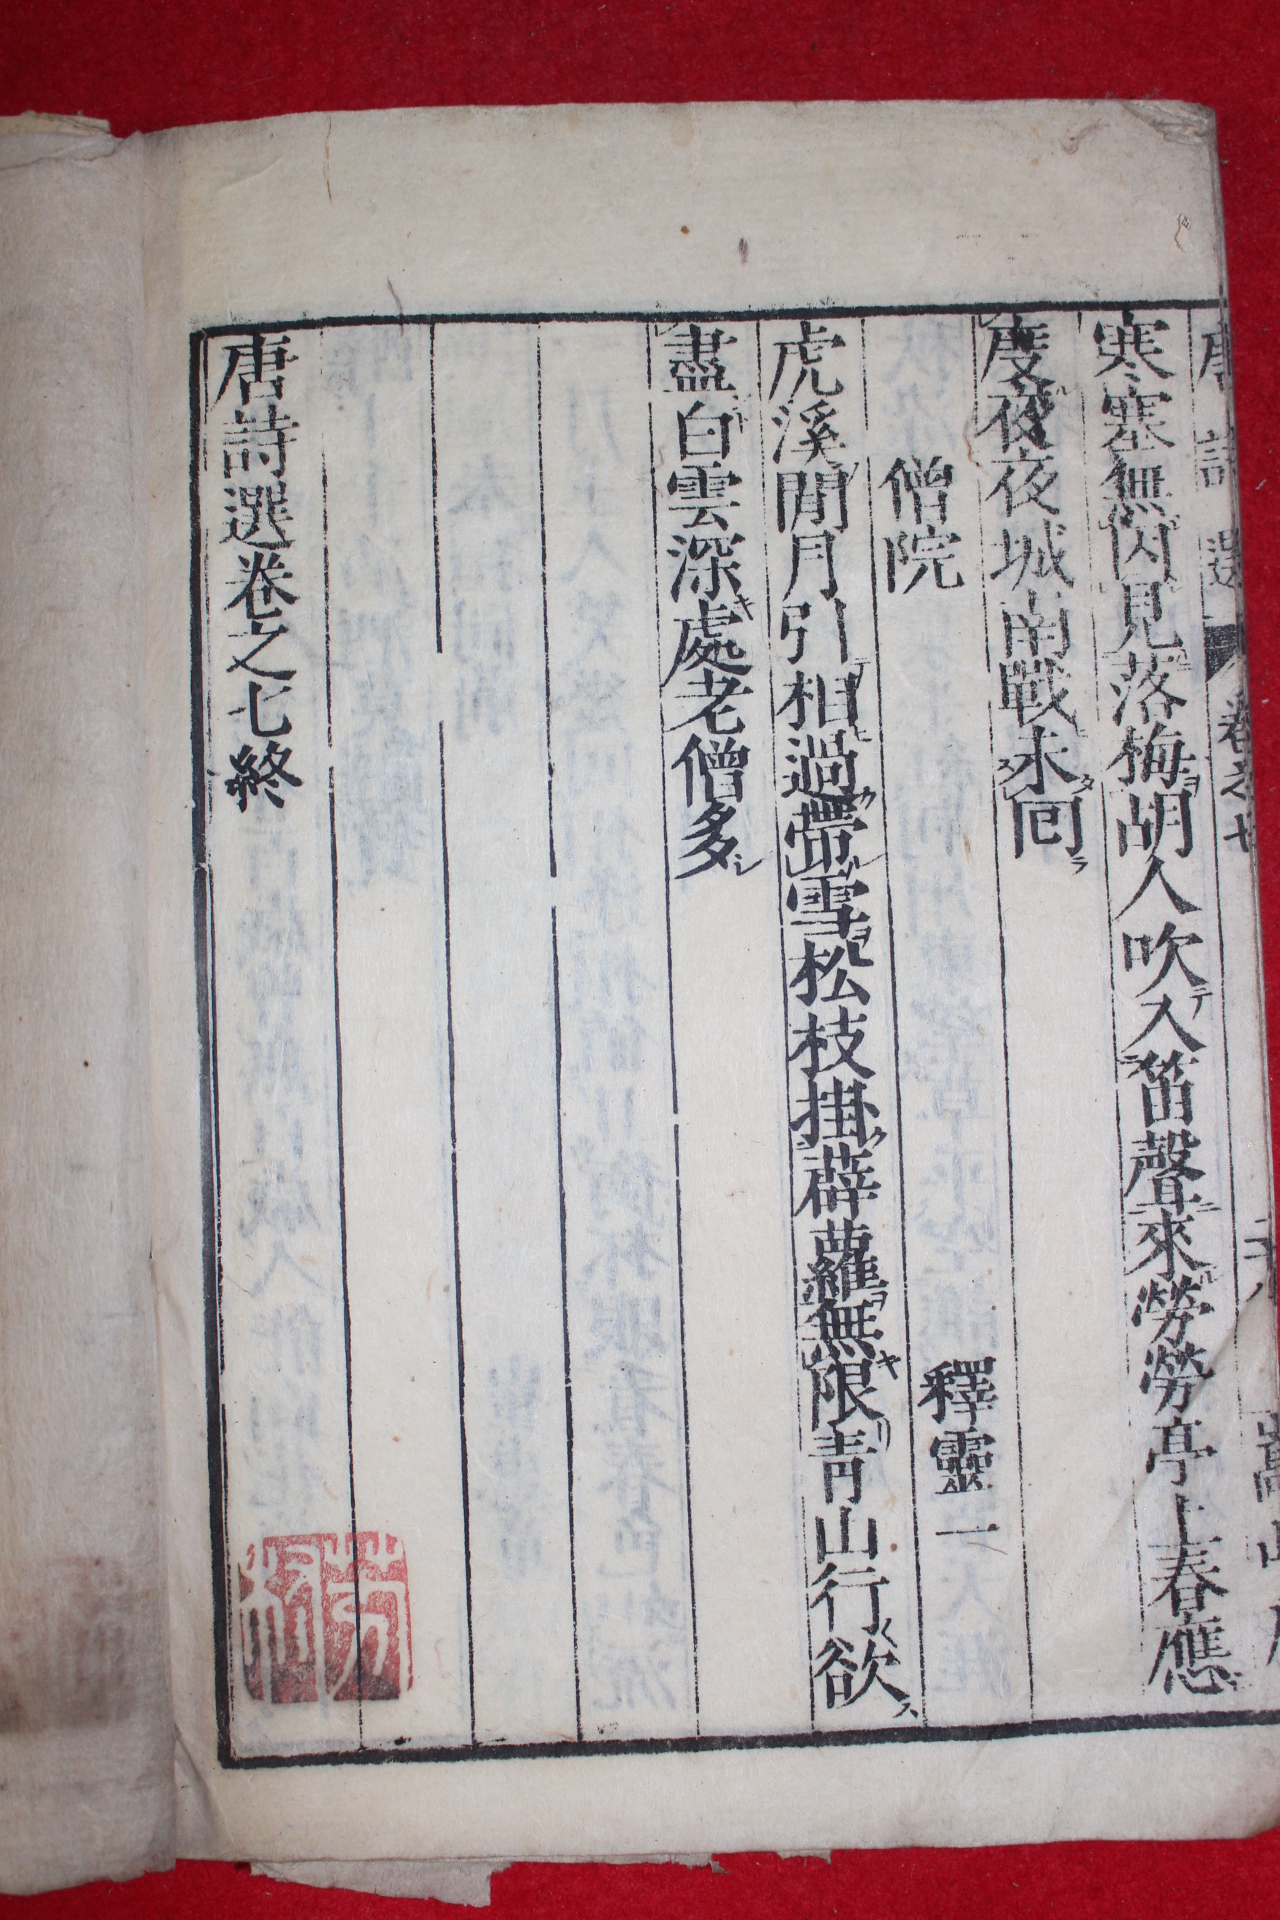 唐詩選 卷之七 二十八 嵩山房
寒塞無因見落梅胡人吹入笛聲來勞勞亭上春應
度夜夜城南戰未囘
僧院 釋靈一
虎溪閒月引相過帶雪松枝掛薜蘿無限靑山行欲
盡白雲深處老僧多
唐詩選卷之七終
芳